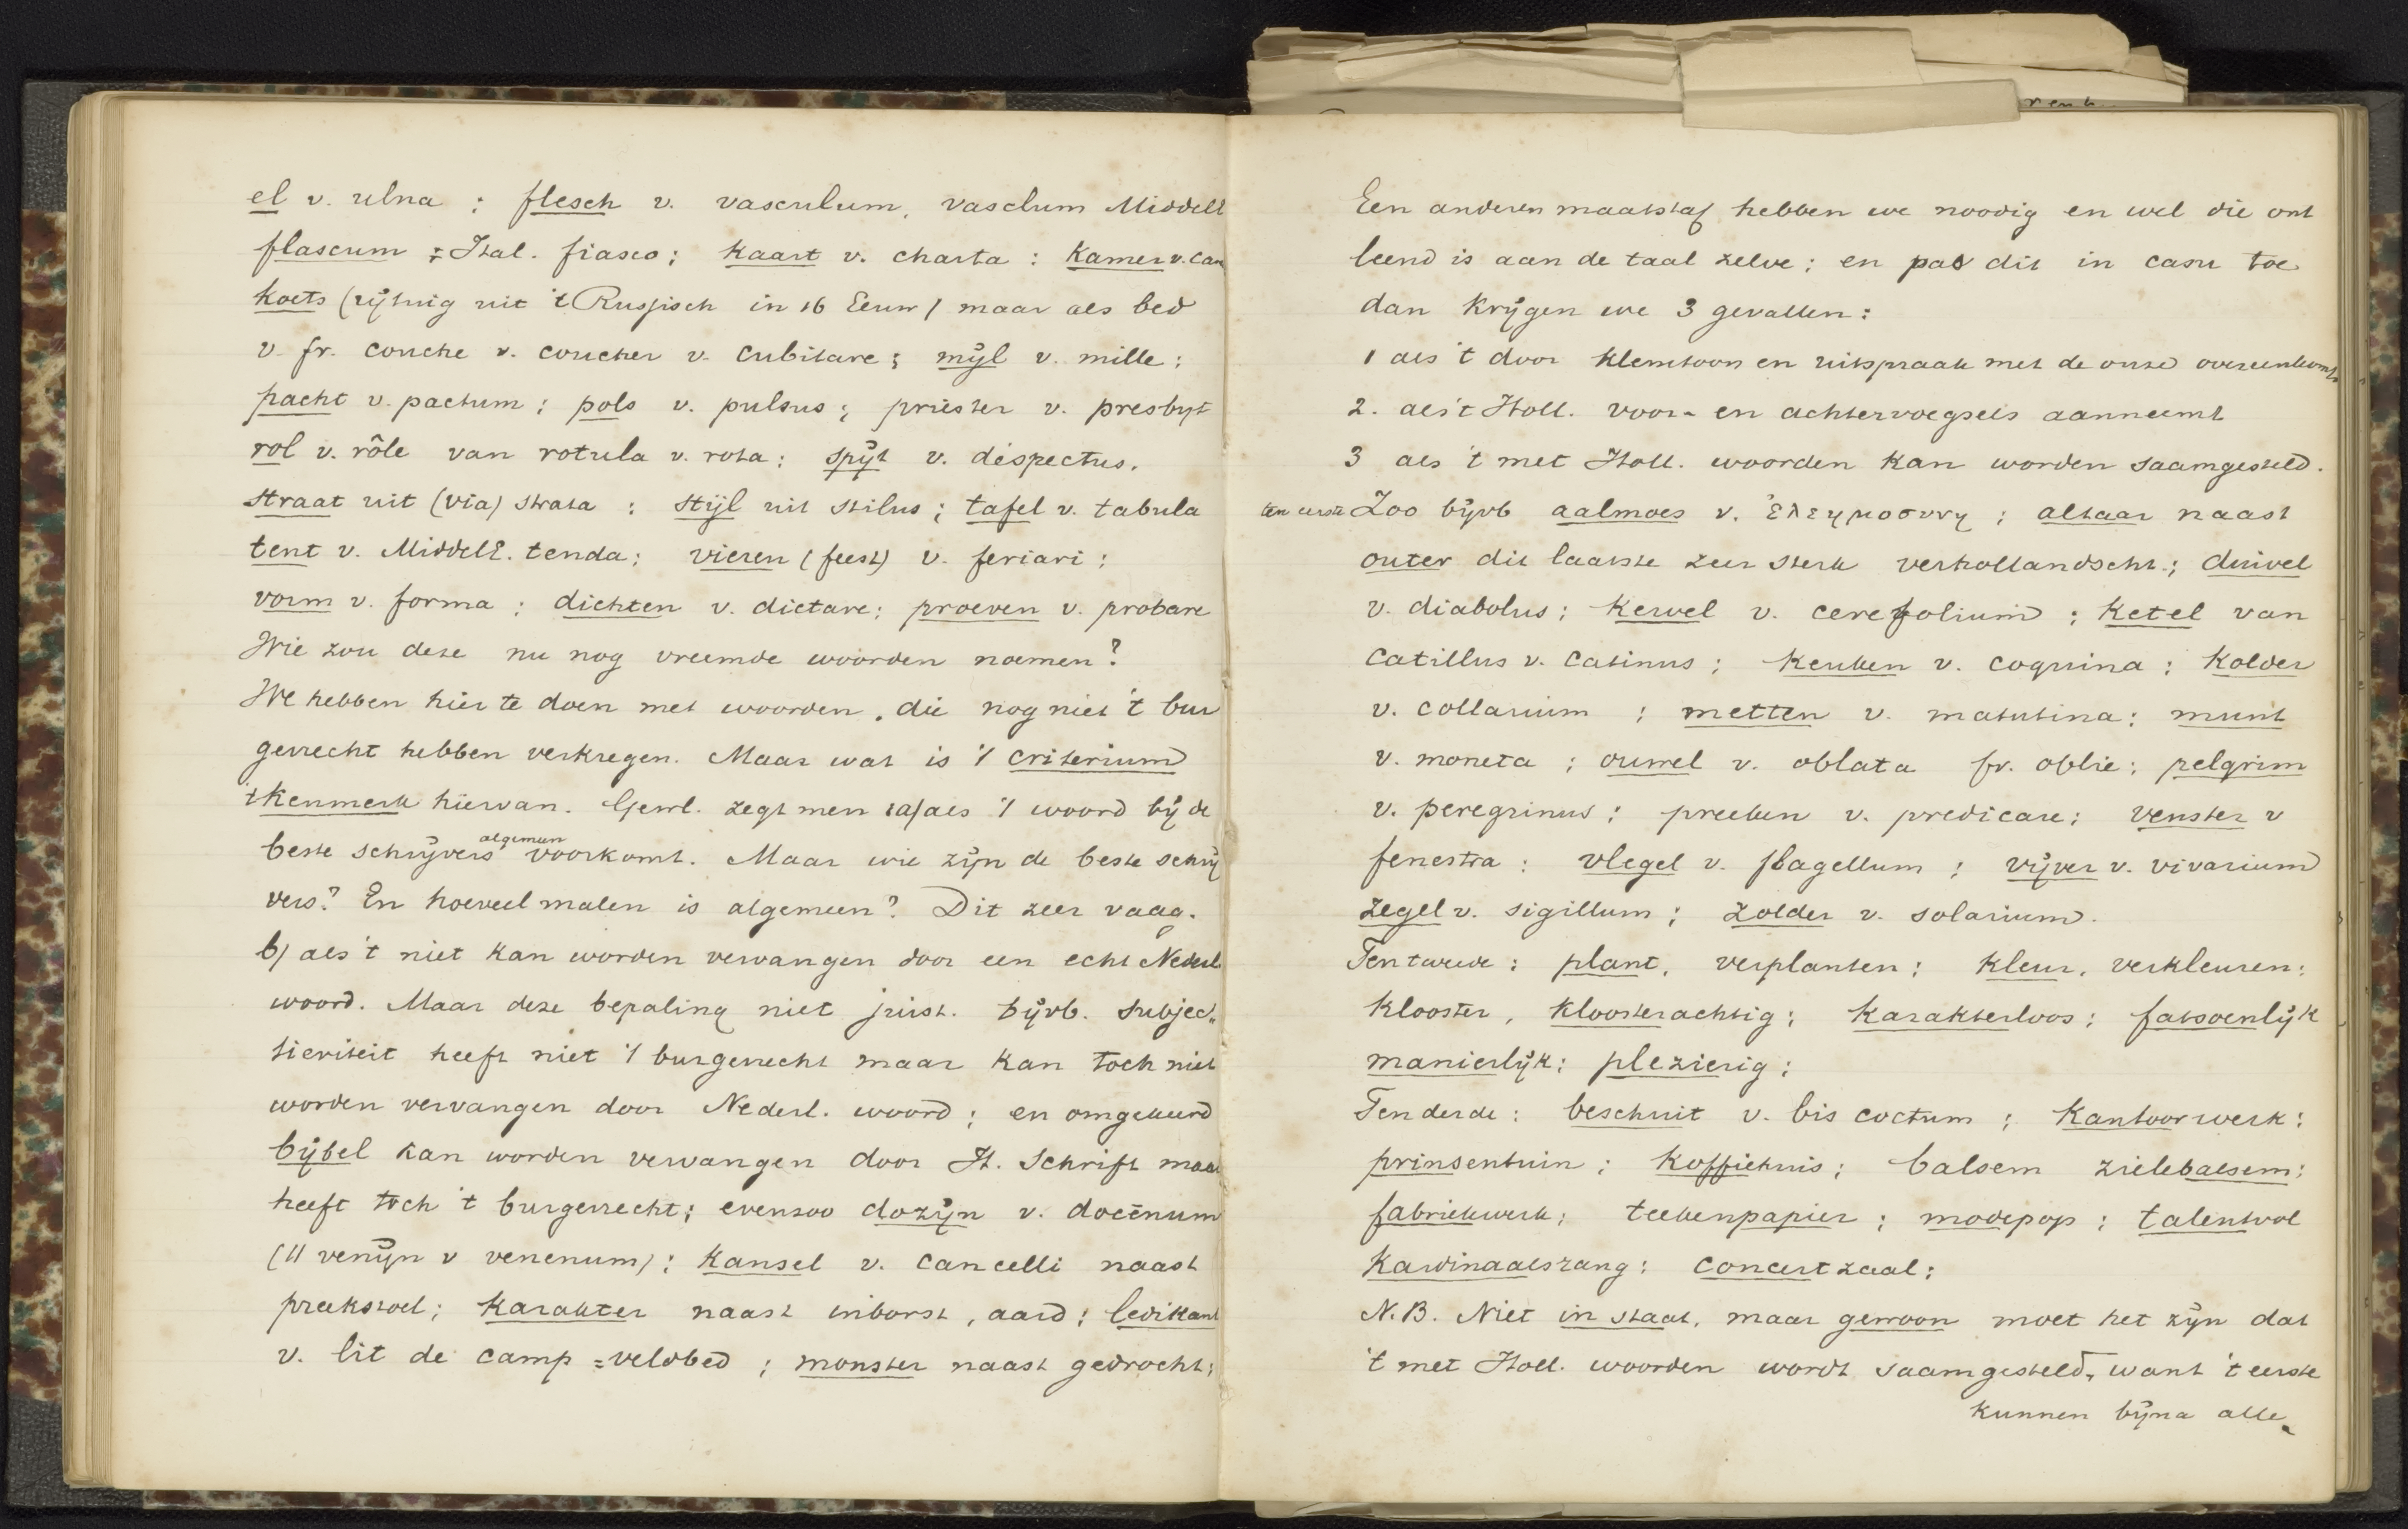 el v. ulna ; flesch v. vasculum, vasclum Middell
flascum ; Ital. fiasco ; kaart v. charta : kamer v. cam
koets (rijtuig uit 't Russisch in 16 Eeuw) maar als bed
v. fr. couche v. coucher v. cubitare ; mijl v. mille ;
pacht v. pactum ; pols v. pulsus ; priester v. presbyt
rol v. rôle van rotula v. rota ; spijt v. despectus.
straat uit (via) strata : stijl uit stilus ; tafel v. tabula
tent v. Middell. tenda ; vieren (feest) v. feriari ;
vorm v. forma ; dichten v. dictare ; proeven v. probare
Wie zou deze nu nog vreemde woorden noemen ?
We hebben hier te doen met woorden, die nog niet 't bur
gerrecht hebben verkregen. Maar wat is 't criterium
't kenmerk hiervan. Gewl. zegt men : a) als 't woord bij de
beste schrijvers algemeen voorkomt. Maar wie zijn de beste schrij
vers ? En hoeveel malen is algemeen ? Dit zeer vaag.
b) als 't niet kan worden vervangen door een echt Nederl
woord. Maar deze bepaling niet juist. bijvb. subjec„
tieviteit heeft niet 't burgerrecht maar kan toch niet
worden vervangen door Nederl. woord ; en omgekeerd
bijbel kan worden vervangen door H. Schrift maar
heeft toch 't burgerrecht ; evenzoo dozijn v. docēnum
(11 venijn v venenum) ; kansel v. cancelli naast
preekstoel ; karakter naast inborst, aard ; ledikant
v. lit de camp = veldbed ; monster naast gedrocht ;
Een anderen maatstaf hebben we noodig en wel die ont
leend is aan de taal zelve ; en pas dit in casu toe
dan krijgen we 3 gevallen :
1 als 't door klemtoon en uitspraak met de onze overeenkomt
2. als 't Holl. voor- en achtervoegsels aanneemt
3 als 't met Holl. woorden kan worden saamgesteld.
ten eerste Zoo bijvb aalmoes v. ἐλεημοσυνη ; altaar naast
outer dit laatste zeer sterk verhollandscht ; duivel
v. diabolus ; kervel v. cerefolium ; ketel van
catillus v. catinus ; keuken v. coquina ; kolder
v. collarium ; metten v. matutina ; munt
v. moneta ; ouwel v. oblata fr. oblie ; pelgrim
v. peregrinus ; preeken v. predicare ; venster v
fenestra : vlegel v. flagellum ; vijver v. vivarium
zegel v. sigillum ; zolder v. solarium.
Ten tweede : plant, verplanten ; kleur, verkleuren ;
klooster, kloosterachtig ; karakterloos ; fatsoenlijk
manierlijk ; plezierig ;
Ten derde : beschuit v. bis coctum ; kantoorwerk ;
prinsentuin ; koffiehuis ; balsem zielebalsem ;
fabriekwerk ; teekenpapier ; modepop ; talentvol
kardinaalszang ; concertzaal ;
N.B. Niet in staat, maar gewoon moet het zijn dat
't met Holl. woorden wordt saamgesteld, want 't eerste
kunnen bijna alle.